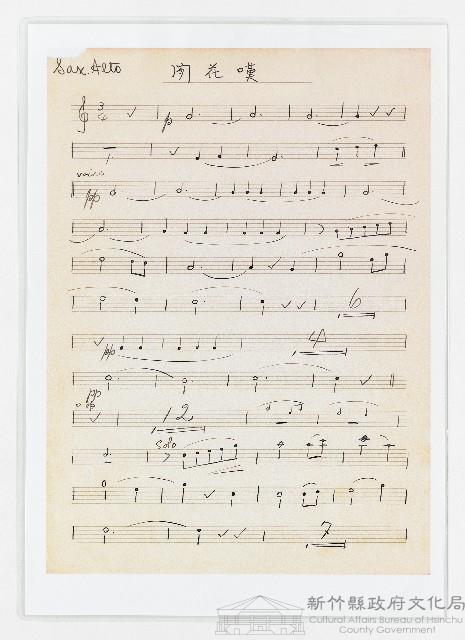 Sax. Alto
閙花嘆
3
4
p
1.
voice
pp
6
pp
4
pp
12
solo
7
新竹縣政府文化局
Cultural Affairs Bureau of Hsinchu
County Government